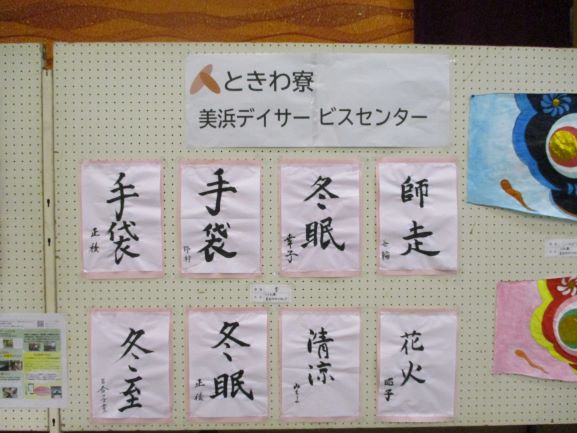 ときわ寮
美浜デイサービスセンター
手袋
正枝
手袋
冬眠
幸子
師走
冬至
冬眠
正枝
清涼
花火
昭子